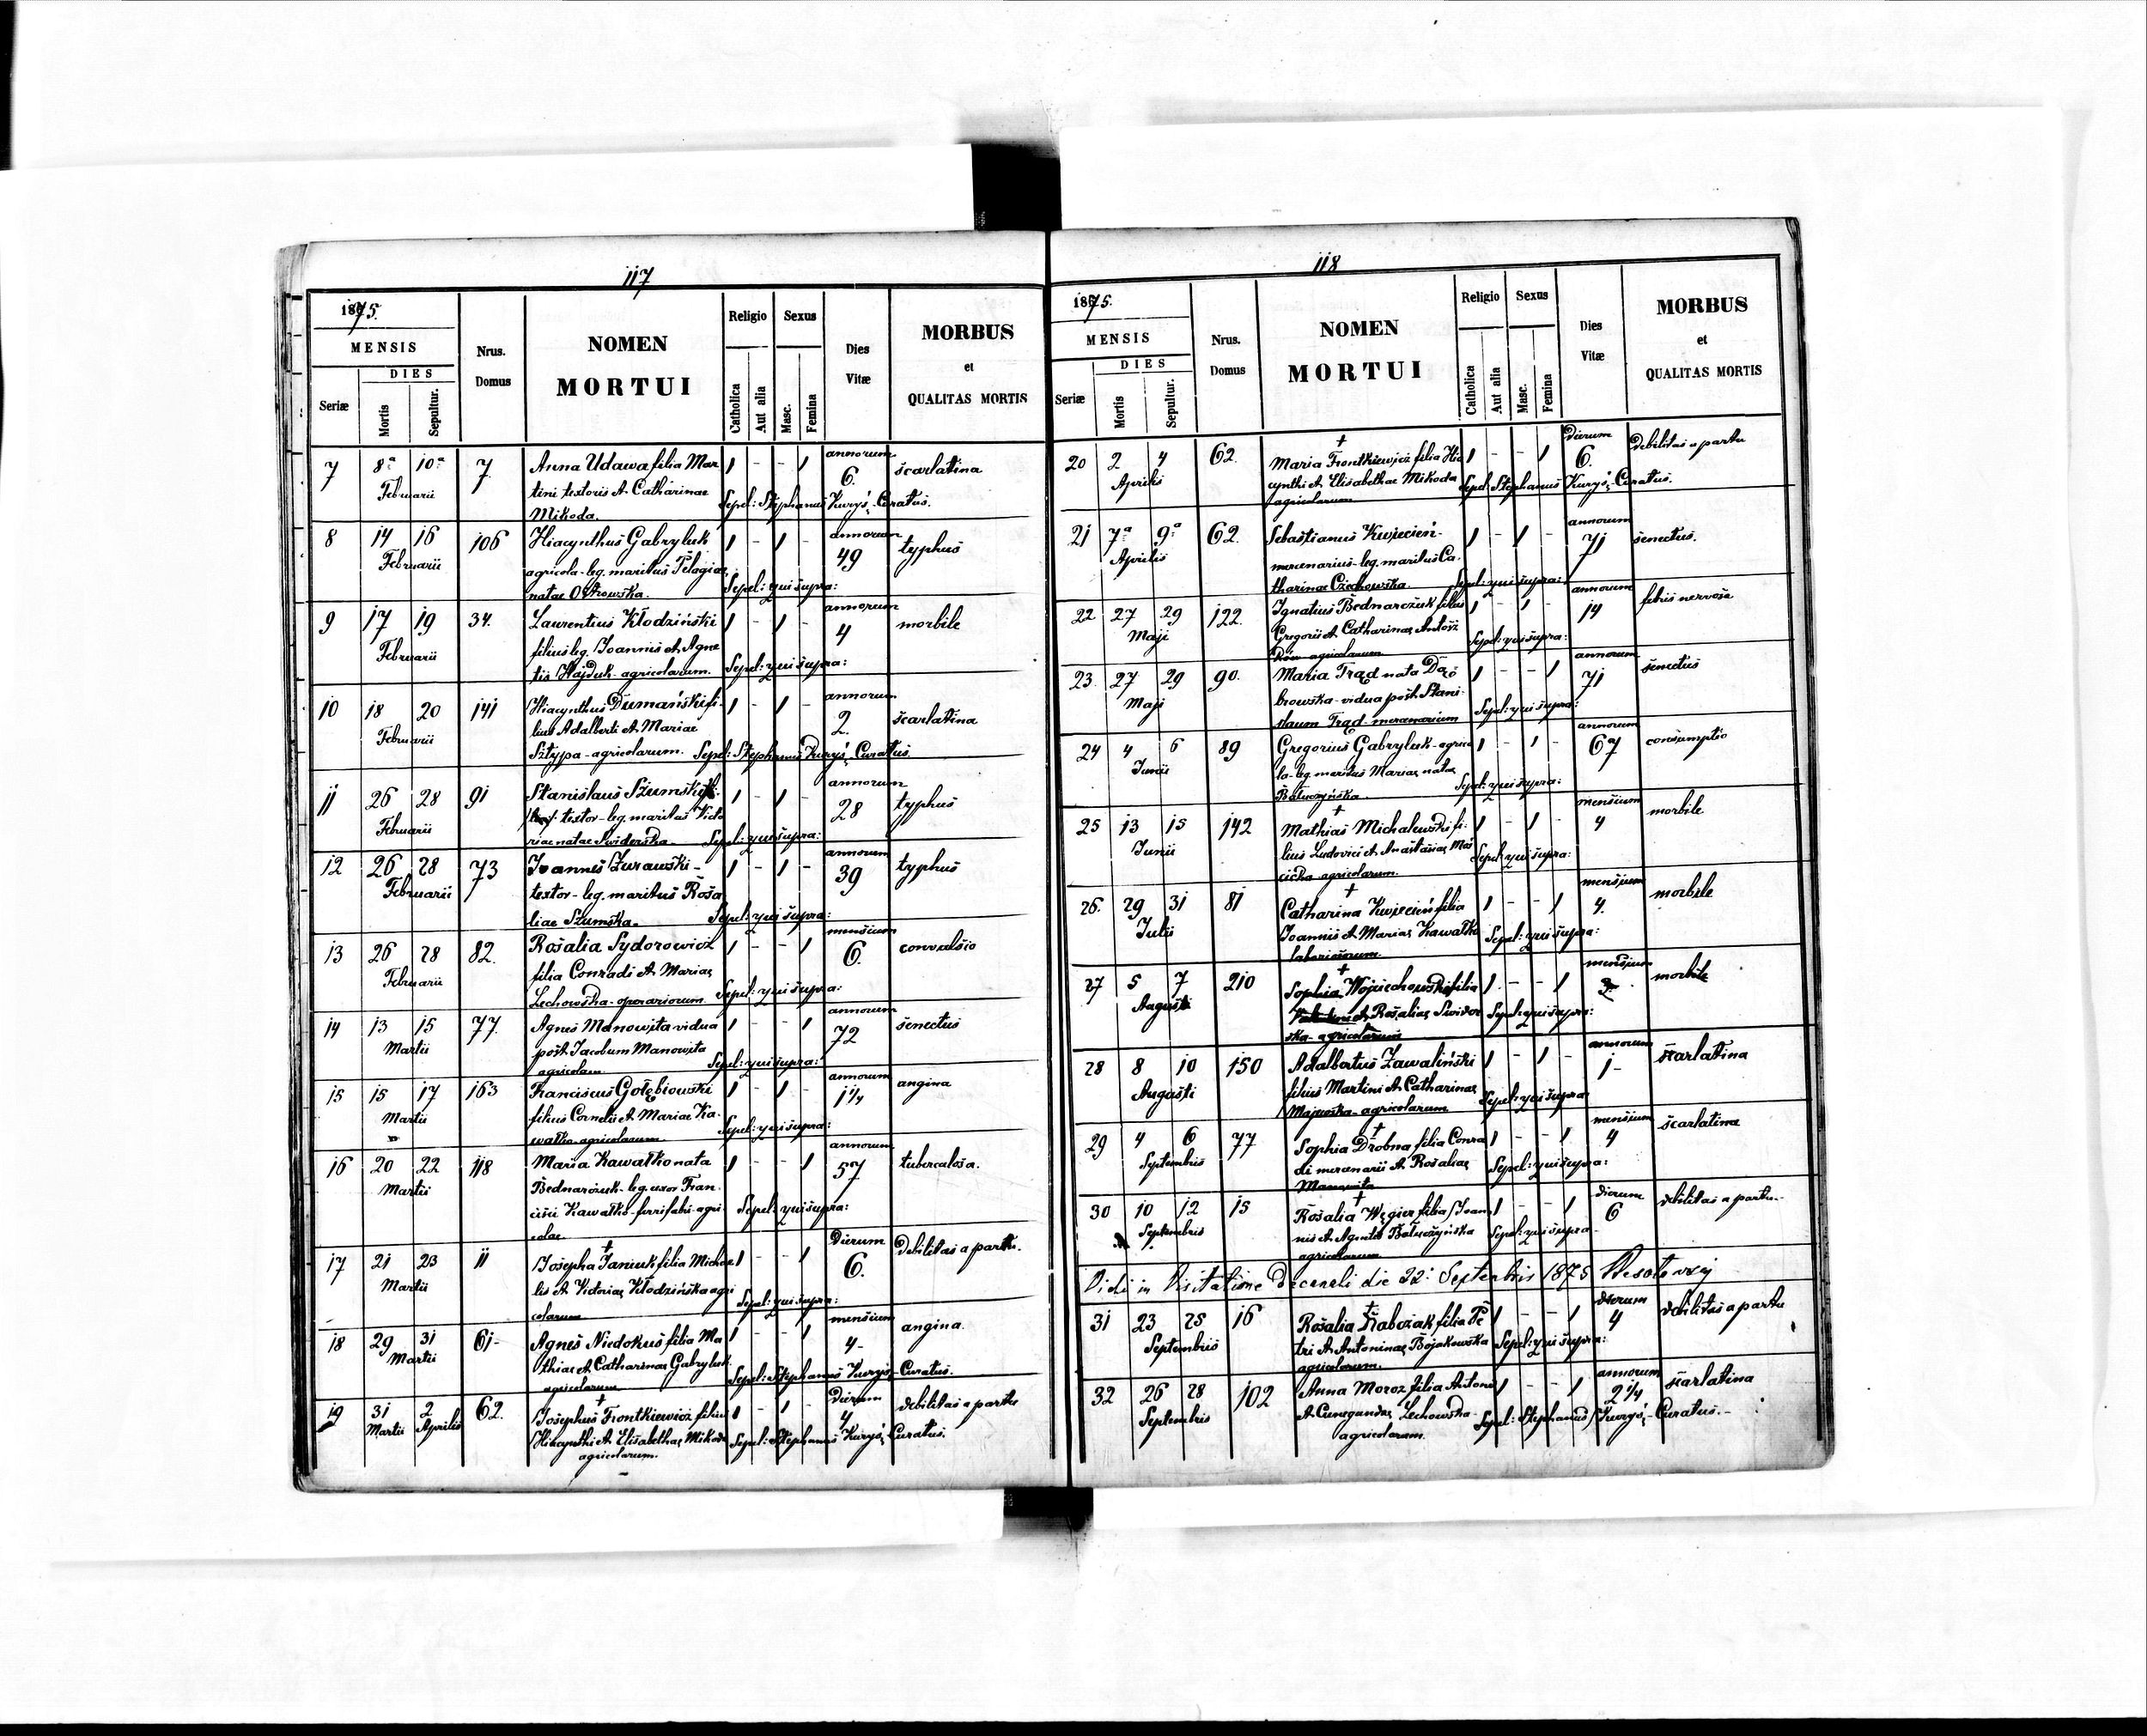 117
1875.
MENSIS
DIES
Seriæ
Mortis
Sepultur.
Nrus.
Domus
NOMEN
MORTUI
Religio
Sexus
Catholica
Aut alia
Masc.
Femina
Dies
Vitæ
MORBUS
et
QUALITAS MORTIS
7 8a 10a 7 Anna Udawa filia Mar 1 - - 1 annorum 6. scarlatina
Februarii tini textoris et Catharinae
Mikoda. Sepel: Stephanus Kuryś, Curatus.
8 14 16 106 Hiacynthus Gabryluk 1 - 1 - annorum 49 typhus
Februarii agricola - leg. maritus Pelagiae
natae Ostrowska. Sepel: qui supra:
9 17 19 34. Laurentius Kłodziński 1 - 1 - annorum 4 morbile
Februarii filius leg. Joannis et Agne
tis Hajduk agricolarum. Sepel: qui supra:
10 18 20 141 Hiacynthus Dumański fi- 1 - 1 - annorum 2. scarlatina
Februarii lius Adalberti et Mariae
Sztypa - agricolarum. Sepel: Stephanus Kuryś, Curatus
11 26 28 91 Stanislaus Szumski 1 - 1 - annorum 28 typhus
Februarii textor - leg. maritus Victo
riae natae Swiderska - Sepel: qui supra:
12 26 28 73 Joannes Żurawski - 1 - 1 - annorum 39 typhus
Februarii textor - leg. maritus Rosa
liae Szumska. Sepel: qui supra:
13 26 28 82. Rosalia Sydorowicz 1 - - 1 mensium 6. convulsio
Februarii filia Conradi et Mariae
Lechowska - operariorum Sepel: qui supra:
14 13 15 77. Agnes Manowita vidua 1 - - 1 annorum 72 senectus
Martii post Jacobum Manowita
agricolam Sepel: qui supra:
15 15 17 163 Franciscus Gołębiowski 1 - 1 - annorum 1 1/4 angina
Martii filius Cornelii et Mariae Ka-
wałko agricolarum Sepel: qui supra:
16 20 22 118 Maria Kawałko nata 1 - - 1 annorum 57 tuberculosa.
Martii Bednarczuk - leg. uxor Fran-
cisci Kawałko - ferrifabri - agri
colae Sepel: qui supra:
17 21 23 11 Josepha Janiuk filia Micha 1 - - 1 Dierum 6. Debilitas a partu.
Martii lis et Victoriae Kłodzińska agri
colarum Sepel: qui supra:
18 29 31 61- Agnes Niedokus filia Ma 1 - - 1 mensium 4- angina.
Martii thiae et Catharinae Gabryluk
agricolarum Sepel: Stephanus Kuryś, Curatus.
19 31 2 62. Josephus Frontkiewicz filius 1 - 1 - Dierum 4 debilitas a partu
Martii Aprilis Hiacynthi et Elisabethae Mikoda Sepel: Stephanus Kuryś, Curatus.
agricolarum.
118
1875.
MENSIS
DIES
Seriæ
Mortis
Sepultur.
Nrus.
Domus
NOMEN
MORTUI
Religio
Sexus
Catholica
Aut alia
Masc.
Femina
Dies
Vitæ
MORBUS
et
QUALITAS MORTIS
20 2 4 62. Maria Frontkiewicz filia Hia 1 - - 1 Dierum 6. debilitas a partu
Aprilis cynthi et Elisabethae Mikoda Sepel: Stephanus Kuryś, Curatus.
agricolarum
21 7a 9a 62. Sebastianus Kwiecień - 1 - 1 - annorum 71 senectus.
Aprilis mercenarius - leg. maritus Ca-
tharinae Czechowska Sepel: qui supra:
22 27 29 122. Ignatius Bednarczuk filius 1 - 1 - annorum 14 febris nervosa
Maji Gregorii et Catharinae
agricolarum Sepel: qui supra:
23. 27 29 90. Maria Frąd nata Dą- 1 - - 1 annorum 71 senectus
Maji browska - vidua post Stani-
slaum Frąd - mercenarium Sepel: qui supra:
24 4 6 89 Gregorius Gabryluk - agrico 1 - 1 - annorum 67 consumptio
Junii la - leg. maritus Mariae natae
Batuczyńska Sepel: qui supra:
25 13 15 142 Mathias Michalewski fi- 1 - 1 - mensium 4 morbile
Junii lius Ludovici et Anastasiae Maś
cicka agricolarum. Sepel: qui supra:
26. 29 31 81 Catharina Kwiecień filia 1 - - 1 mensium 4. morbile
Julii Joannis et Mariae Kawałko Sepel: qui supra:
laboriosorum.
27 5 7 210 Sophia Wojciechowska filia 1 - - 1 mensium morbile
Augusti et Rosaliae Swider Sepel: qui supra:
ska - agricolarum
28 8 10 150 Adalbertus Zawaliński 1 - 1 - annorum 1- scarlatina
Augusti filius Martini et Catharinae
Majewska - agricolarum Sepel: qui supra
29 4 6 77 Sophia Drobna filia Conra 1 - - 1 mensium 4 scarlatina
Septembris di mercenarii et Rosaliae Sepel: qui supra:
Manowita
30 10 12 15 Rosalia Węgier filia Joan 1 - - 1 dierum 6 debilitas a partu -
Septembris nis et Agnetis Batuczyńska Sepel: qui supra -
agricolarum
Vidi in Visitatione Decanali die 22. Septembris 1875
31 23 25 16 Rosalia Rabczak filia Pe 1 - - 1 dierum 4 debilitas a partu
Septembris tri et Antoninae Bojakowska Sepel: qui supra:
agricolarum.
32 26 28 102 Anna Moroz filia Antoni 1 - - 1 annorum 2 1/4 scarlatina
Septembris et Cunegundae Lechowska - Sepel: Stephanus Kuryś, Curatus. -
agricolarum.